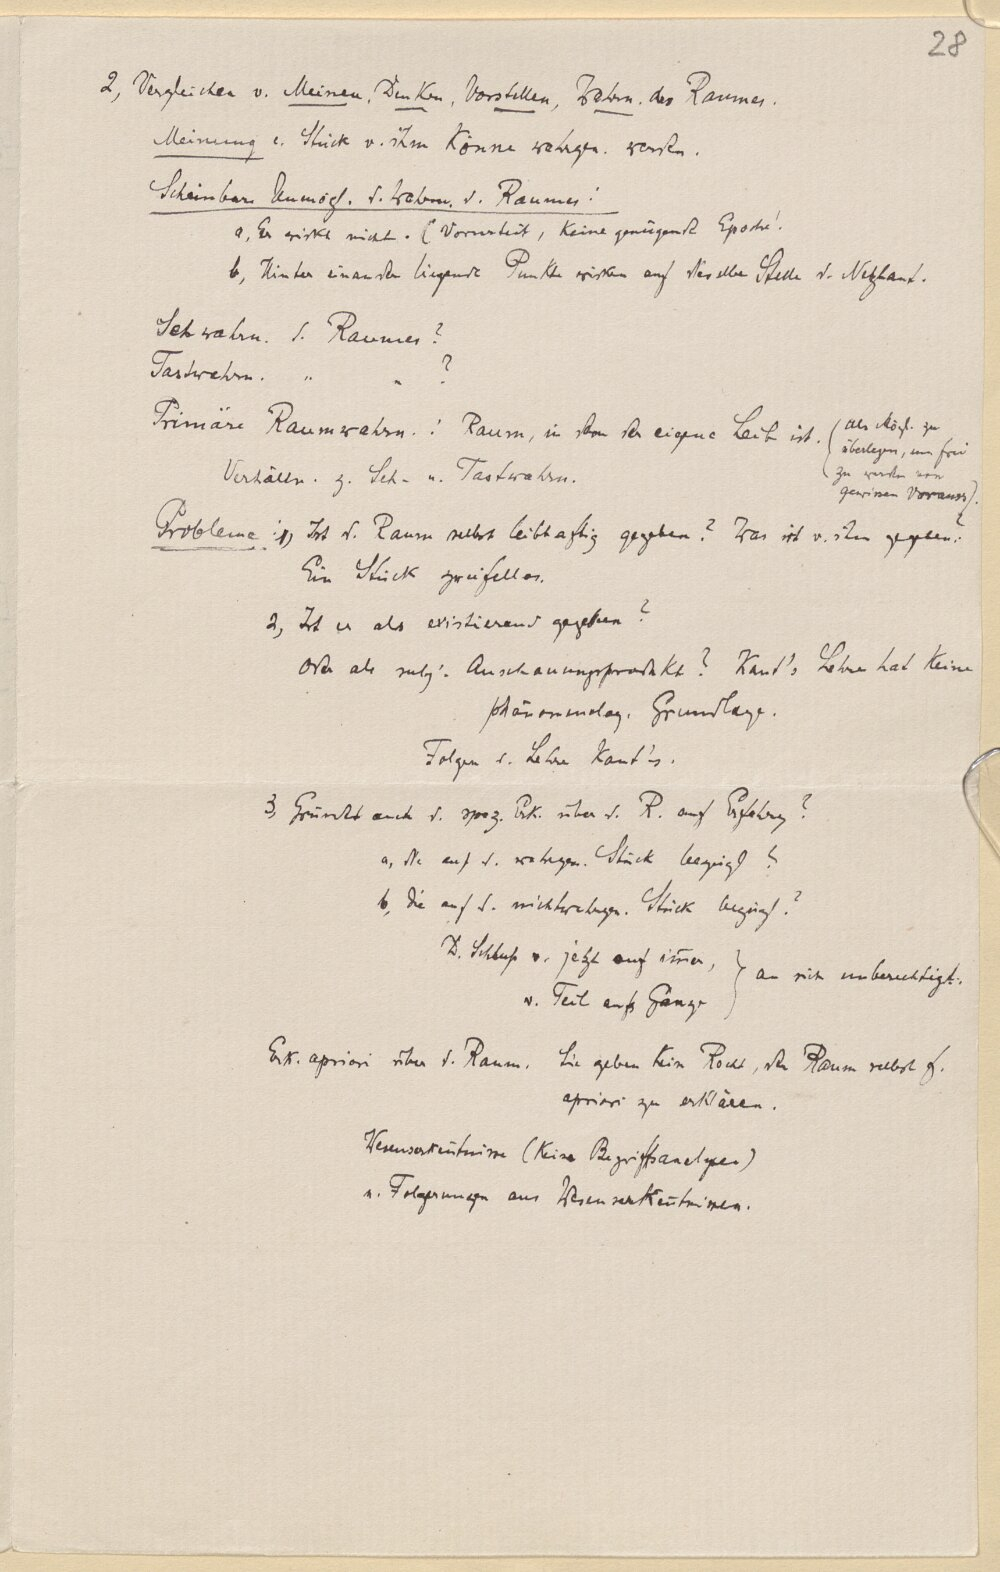 28
2, Vergleichen v. Meinen, Denken, Vorstellen, Wahrn. des Raumes.
Meinung e. Stück v. ihm könne wahrgen. werden.
Scheinbare Unmögl. d. Wahrn. d. Raumes!
a, Er wirkt nicht. (Vorurteil, keine genügende Epoché!
b, Hinter einander liegende Punkte wirken auf dieselbe Stelle d. Netzhaut.
Sehwahrn. d. Raumes?
Tastwahrn. " " ?
Primäre Raumwahrn.: Raum, in dem der eigene Leib ist. (Als Mögl. zu
überlegen, um frei
zu werden von
gewissen Vorauss.)
Verhältn. z. Seh- u. Tastwahrn.
Probleme: 1) Ist d. Raum selbst leibhaftig gegeben? Was ist v. ihm gegeben?
Ein Stück zweifellos.
2, Ist er als existierend gegeben?
oder als subj. Anschauungsprodukt? Kant's Lehre hat keine
phänomenolog. Grundlage.
Folgen d. Lehre Kant's.
3, Gründet auch d. spez. Erk. über d. R. auf Erfahrung?
a, die auf d. wahrgen. Stück bezügl?
b, die auf d. nichtwahrgen. Stück bezügl.?
D. Schluß v. jetzt auf im̄er,
v. Teil aufs Ganze } an sich unberechtigt.
Erk. apriori über d. Raum. Sie geben kein Recht, den Raum selbst f.
apriori zu erklären.
Wesenserken̄tnisse (keine Begriffsanalysen)
u. Folgerungen aus Wesenserken̄tnissen.